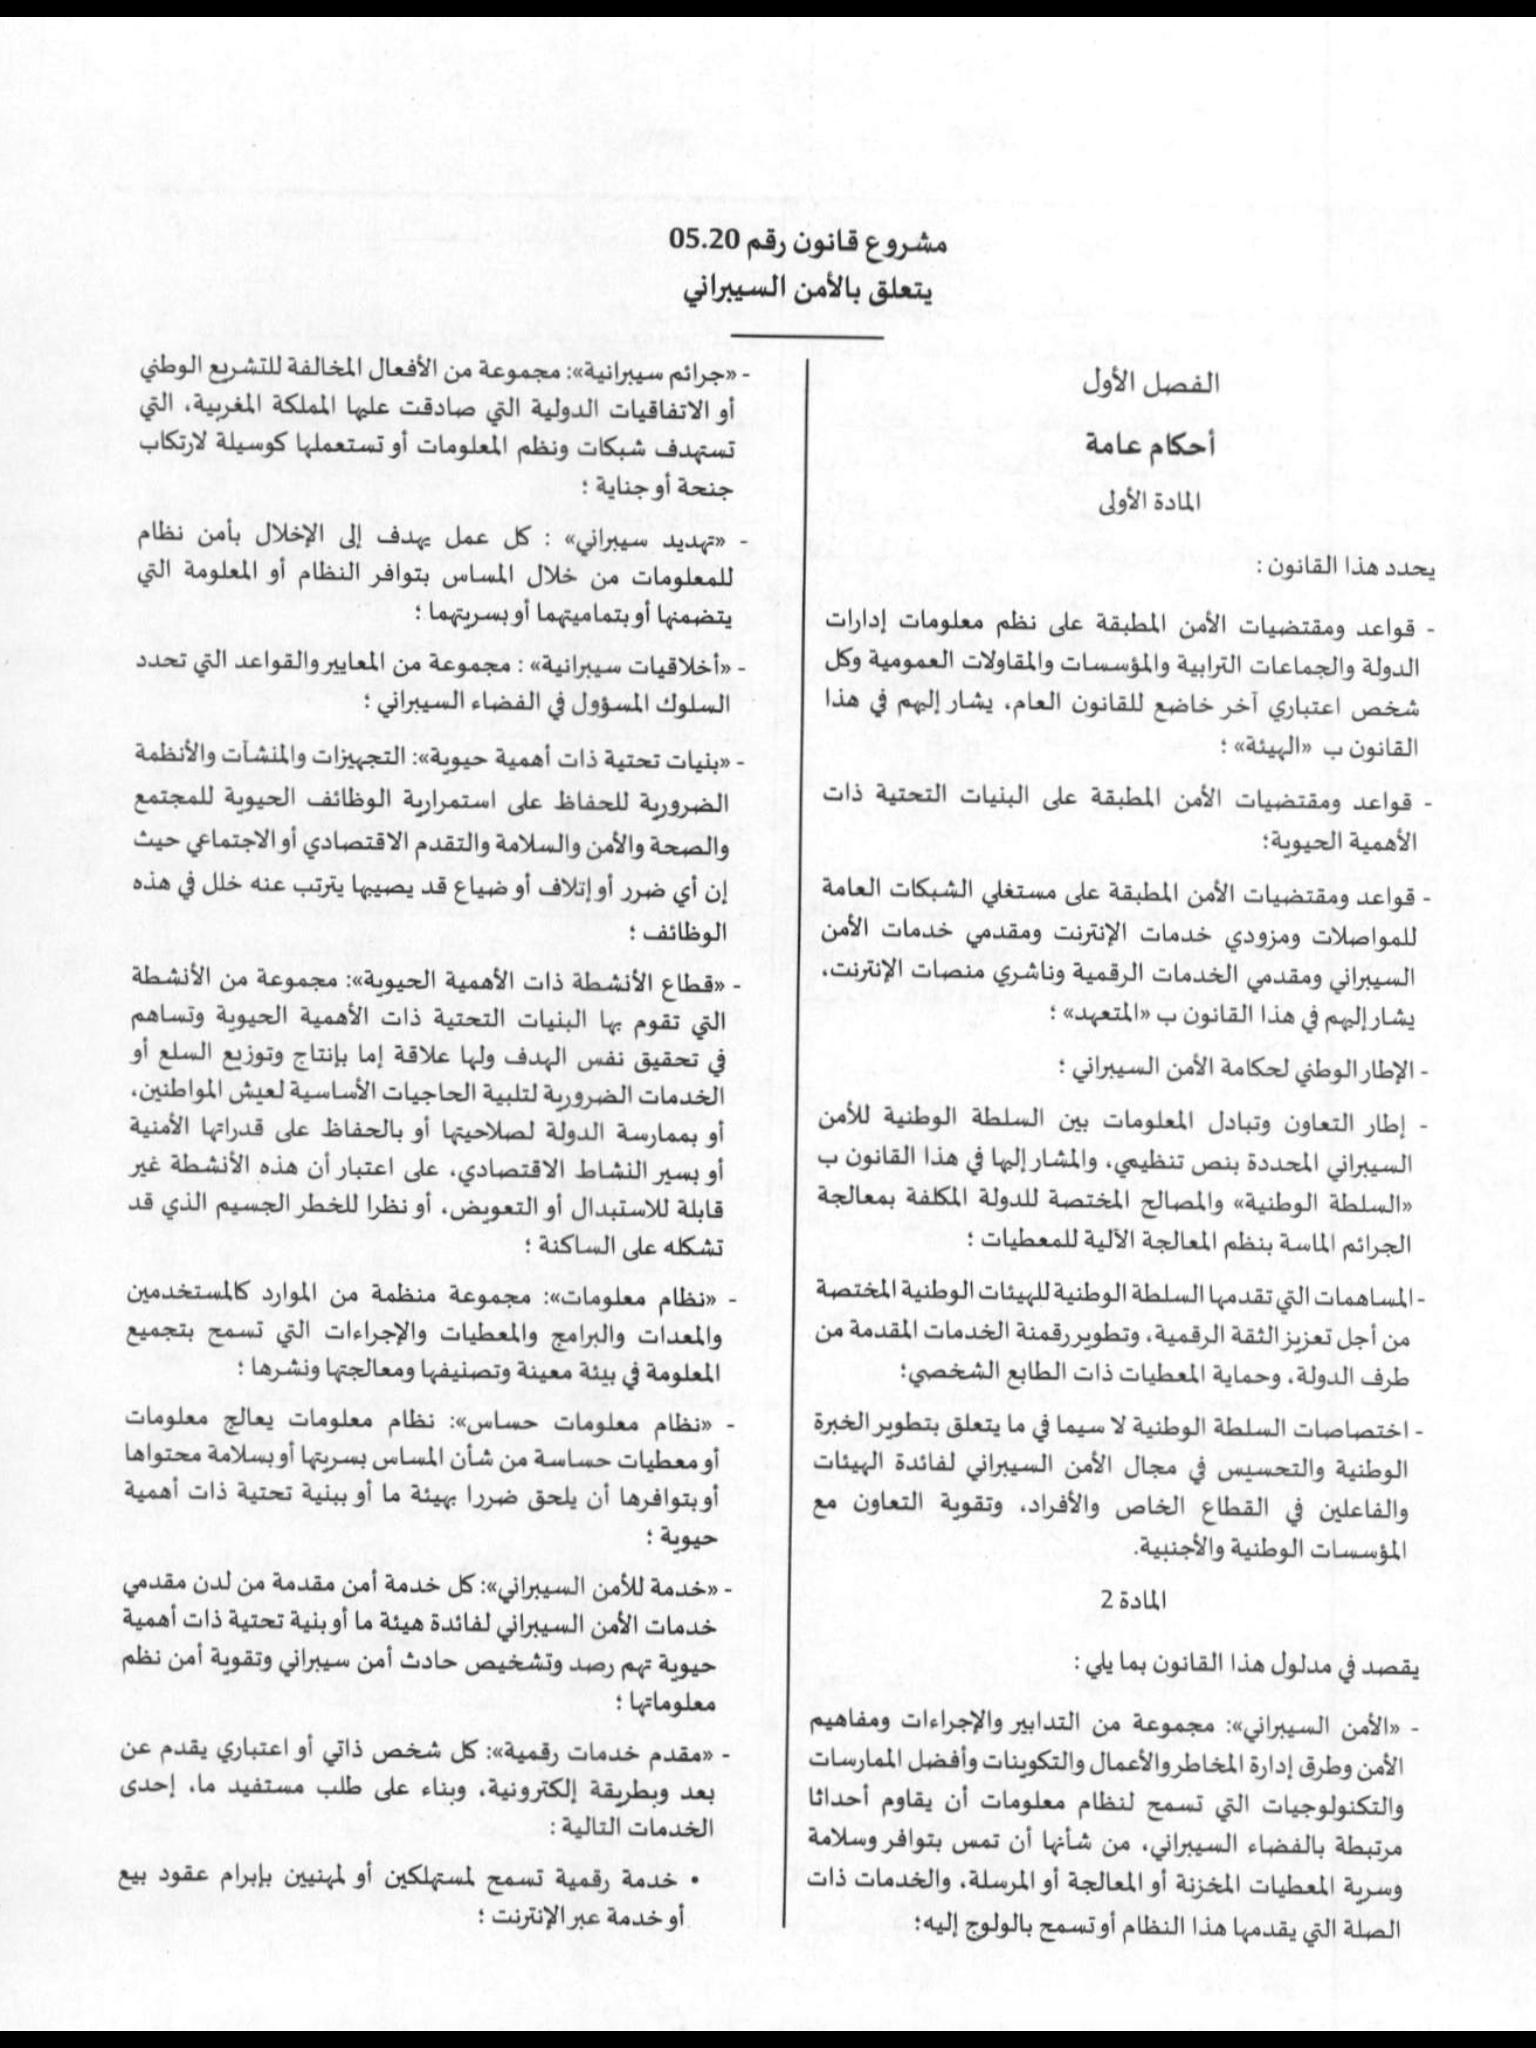 مشروع قانون رقم 05.20
يتعلق بالأمن السيبراني
الفصل الأول
أحكام عامة
المادة الأولى
يحدد هذا القانون :
- قواعد ومقتضيات الأمن المطبقة على نظم معلومات إدارات
الدولة والجماعات الترابية والمؤسسات والمقاولات العمومية وكل
شخص اعتباري آخر خاضع للقانون العام، يشار إليهم في هذا
القانون ب «الهيئة» ؛
- قواعد ومقتضيات الأمن المطبقة على البنيات التحتية ذات
الأهمية الحيوية؛
- قواعد ومقتضيات الأمن المطبقة على مستغلي الشبكات العامة
للمواصلات ومزودي خدمات الإنترنت ومقدمي خدمات الأمن
السيبراني ومقدمي الخدمات الرقمية وناشري منصات الإنترنت،
يشار إليهم في هذا القانون ب «المتعهد» ؛
- الإطار الوطني لحكامة الأمن السيبراني ؛
- إطار التعاون وتبادل المعلومات بين السلطة الوطنية للأمن
السيبراني المحددة بنص تنظيمي، والمشار إليها في هذا القانون ب
«السلطة الوطنية» والمصالح المختصة للدولة المكلفة بمعالجة
الجرائم الماسة بنظم المعالجة الآلية للمعطيات ؛
- المساهمات التي تقدمها السلطة الوطنية للهيئات الوطنية المختصة
من أجل تعزيز الثقة الرقمية، وتطوير رقمنة الخدمات المقدمة من
طرف الدولة، وحماية المعطيات ذات الطابع الشخصي؛
- اختصاصات السلطة الوطنية لا سيما في ما يتعلق بتطوير الخبرة
الوطنية والتحسيس في مجال الأمن السيبراني لفائدة الهيئات
والفاعلين في القطاع الخاص والأفراد، وتقوية التعاون مع
المؤسسات الوطنية والأجنبية.
المادة 2
يقصد في مدلول هذا القانون بما يلي :
- «الأمن السيبراني»: مجموعة من التدابير والإجراءات ومفاهيم
الأمن وطرق إدارة المخاطر والأعمال والتكوينات وأفضل الممارسات
والتكنولوجيات التي تسمح لنظام معلومات أن يقاوم أحداثا
مرتبطة بالفضاء السيبراني، من شأنها أن تمس بتوافر وسلامة
وسرية المعطيات المخزنة أو المعالجة أو المرسلة، والخدمات ذات
الصلة التي يقدمها هذا النظام أو تسمح بالولوج إليه؛
- «جرائم سيبرانية»: مجموعة من الأفعال المخالفة للتشريع الوطني
أو الاتفاقيات الدولية التي صادقت عليها المملكة المغربية، التي
تستهدف شبكات ونظم المعلومات أو تستعملها كوسيلة لارتكاب
جنحة أو جناية ؛
- «تهديد سيبراني» : كل عمل يهدف إلى الإخلال بأمن نظام
للمعلومات من خلال المساس بتوافر النظام أو المعلومة التي
يتضمنها أو بتماميتهما أو بسريتهما ؛
- «أخلاقيات سيبرانية» : مجموعة من المعايير والقواعد التي تحدد
السلوك المسؤول في الفضاء السيبراني ؛
- «بنيات تحتية ذات أهمية حيوية»: التجهيزات والمنشآت والأنظمة
الضرورية للحفاظ على استمرارية الوظائف الحيوية للمجتمع
والصحة والأمن والسلامة والتقدم الاقتصادي أو الاجتماعي حيث
إن أي ضرر أو إتلاف أو ضياع قد يصيبها يترتب عنه خلل في هذه
الوظائف ؛
- «قطاع الأنشطة ذات الأهمية الحيوية»: مجموعة من الأنشطة
التي تقوم بها البنيات التحتية ذات الأهمية الحيوية وتساهم
في تحقيق نفس الهدف ولها علاقة إما بإنتاج وتوزيع السلع أو
الخدمات الضرورية لتلبية الحاجيات الأساسية لعيش المواطنين،
أو بممارسة الدولة لصلاحيتها أو بالحفاظ على قدراتها الأمنية
أو بسير النشاط الاقتصادي، على اعتبار أن هذه الأنشطة غير
قابلة للاستبدال أو التعويض، أو نظرا للخطر الجسيم الذي قد
تشكله على الساكنة ؛
- «نظام معلومات»: مجموعة منظمة من الموارد كالمستخدمين
والمعدات والبرامج والمعطيات والإجراءات التي تسمح بتجميع
المعلومة في بيئة معينة وتصنيفها ومعالجتها ونشرها ؛
- «نظام معلومات حساس»: نظام معلومات يعالج معلومات
أو معطيات حساسة من شأن المساس بسريتها أو بسلامة محتواها
أو بتوافرها أن يلحق ضررا بهيئة ما أو ببنية تحتية ذات أهمية
حيوية ؛
- «خدمة للأمن السيبراني»: كل خدمة أمن مقدمة من لدن مقدمي
خدمات الأمن السيبراني لفائدة هيئة ما أو بنية تحتية ذات أهمية
حيوية تهم رصد وتشخيص حادث أمن سيبراني وتقوية أمن نظم
معلوماتها ؛
- «مقدم خدمات رقمية»: كل شخص ذاتي أو اعتباري يقدم عن
بعد وبطريقة إلكترونية، وبناء على طلب مستفيد ما، إحدى
الخدمات التالية :
• خدمة رقمية تسمح لمستهلكين أو لمهنيين بإبرام عقود بيع
أو خدمة عبر الإنترنت ؛